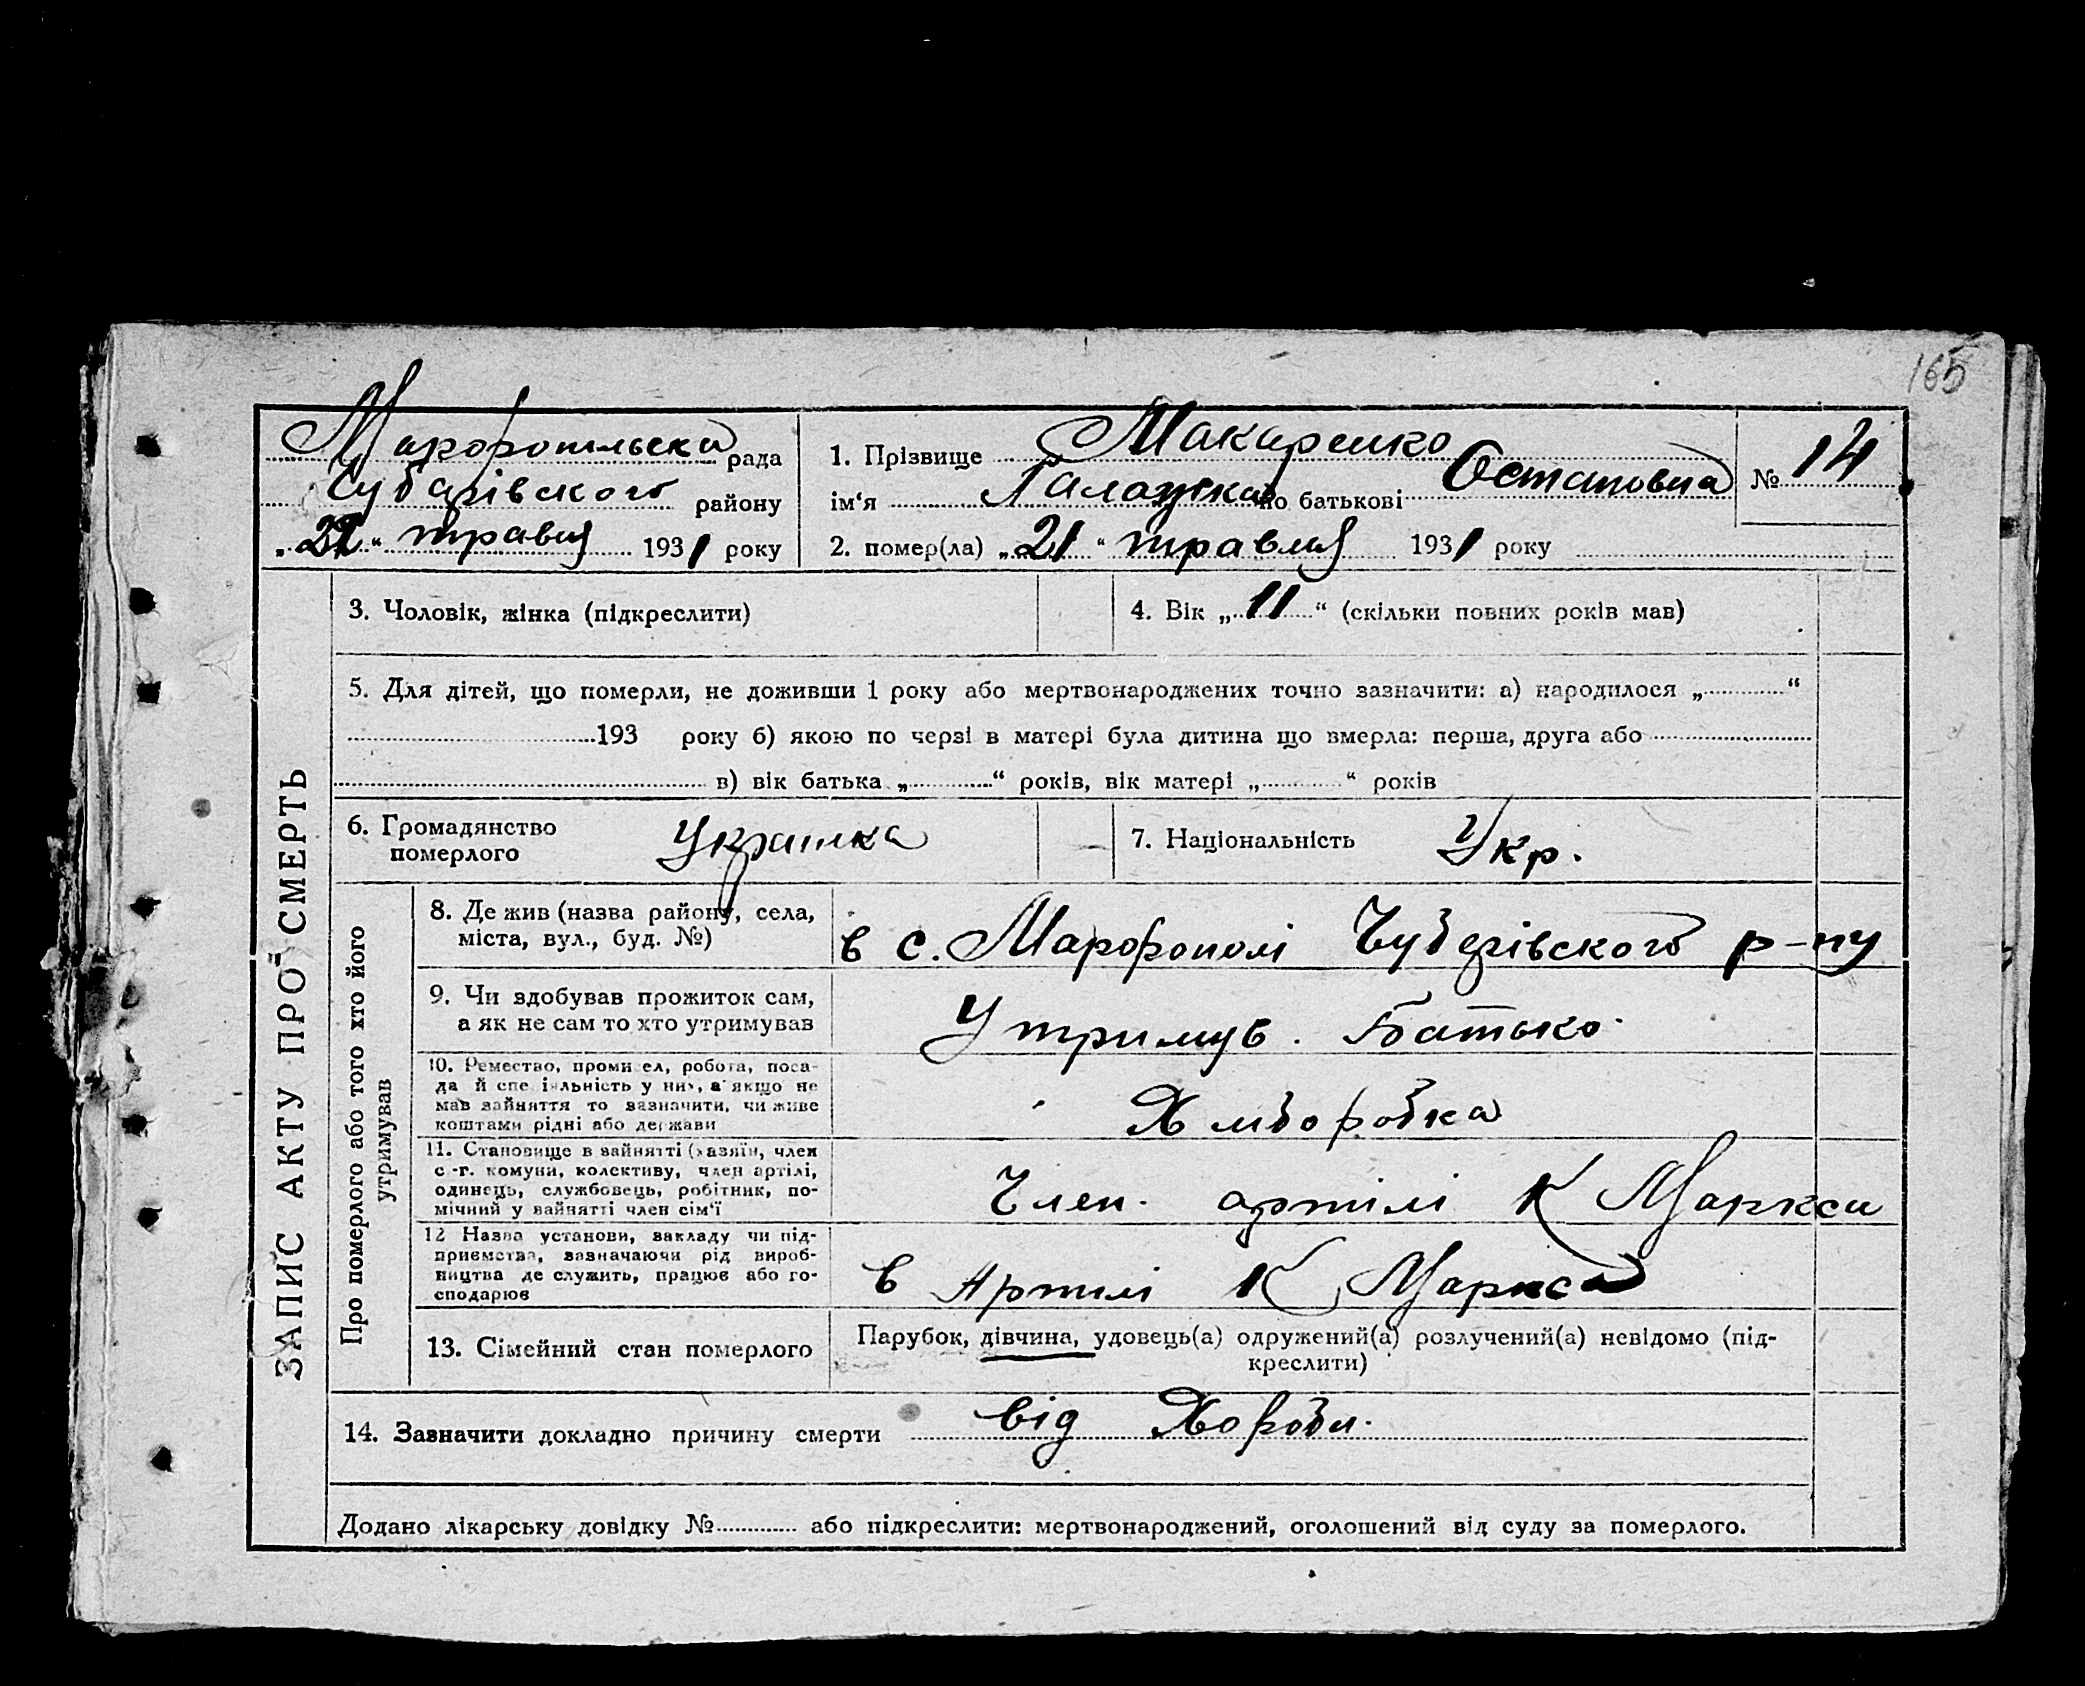 165
Марфопільська рада
Чубарівського району
„22“ травня 1931 року
1. Прізвище Макаренко
ім‘я по батькові Остаповна
№ 14
2. помер(ла) „21“ травня 1931 року
ЗАПИС АКТУ ПРО СМЕРТЬ
3. Чоловік, жінка (підкреслити)
4. Вік „11“ (скільки повних років мав)
5. Для дітей, що померли, не доживши 1 року або мертвонароджених точно зазначити: а) народилося „ “
193 року б) якою по черзі в матері була дитина що вмерла: перша, друга або
в) вік батька „ “ років, вік матері „ “ років
6. Громадянство
померлого
Украинка
7. Національність Укр.
Про померлого або того хто його
утримував
8. Де жив (назва району, села,
міста, вул., буд. №)
в с. Марфополі Чубарівського р-ну
9. Чи здобував прожиток сам,
а як не сам то хто утримував
Утримув. Батько.
10. Ремество, промисел, робота, поса-
да й спеціяльність у них, а якщо не
мав зайняття то зазначити, чи живе
коштами рідні або держави
Хліборобка
11. Становище в зайнятті (хазяїн, член
с.-г. комуни, колективу, член артілі,
одинець, службовець, робітник, по-
мічний у зайнятті член сім‘ї
Член. артілі К Маркса
12 Назва установи, закладу чи під-
приємства, зазначаючи рід вироб-
ництва де служить, працює або го-
сподарює
в Артілі К Маркса
13. Сімейний стан померлого
Парубок, дівчина, удовець(а) одружений(а) розлучений(а) невідомо (під-
креслити)
14. Зазначити докладно причину смерти від Хороби.
Додано лікарську довідку № або підкреслити: мертвонароджений, оголошений від суду за померлого.